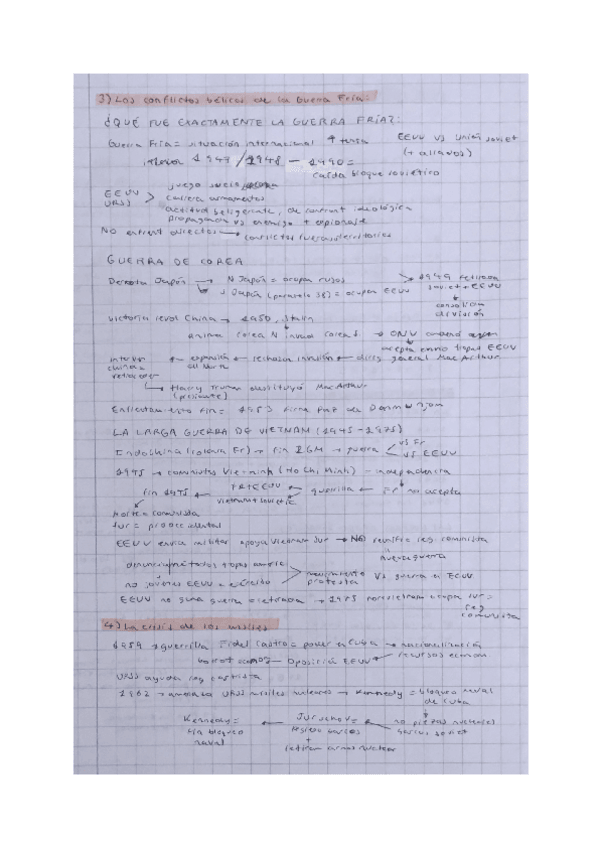 3) Los conflictos bélicos de la Guerra Fría:
¿QUÉ FUE EXACTAMENTE LA GUERRA FRÍA?:
Guerra Fría = situación internacional + tensa EEUU vs Unión soviet
1947/1948 - 1990 = (+ aliados)
caída bloque soviético
EEUU > juego sucio
URSS carrera armamentos
actitud beligerante, de confront ideológica
propaganda vs enemigo + espionaje
NO enfrent directos → conflictos
GUERRA DE COREA
Derrota Japón → N Japón = ocupan rusos > 1949 retirada
→ S Japón (paralelo 38) = ocupan EEUU soviet + EEUU
↓
consolidan
división
Victoria revol China → 1950, Stalin
anima corea N invada corea S. → ONU
acepta envío tropas EEUU
interven ← expansión ← rechazan invasión ← dirig general MacArthur
china
retroceder
↳ Harry Truman destituyó MacArthur
(presidente)
fin = 1953 firma paz de Panmunjom
LA LARGA GUERRA DE VIETNAM (1945-1975)
Indochina (colonia Fr) → fin IIGM → guerra < vs Fr
vs EEUU
1945 → comunistas Vietminh (Ho Chi Minh) → independencia
fin ← Fr + EEUU ← guerrilla ← Fr no acepta
vietminh + soviétic
Norte = comunista
Sur = prooccidental
EEUU envía militar apoya Vietnam Sur → NO reunific reg. comunista
Nueva guerra
denuncian métodos tropas
> movimiento protesta vs guerra en EEUU
no jóvenes EEUU → ejército
EEUU no gana guerra → retirada → 1975 norvietnam ocupa sur =
reg
comunista
4) La crisis de los misiles
1959 → guerrilla Fidel Castro = poder en Cuba → nacionalización
boicot económ ← Oposición EEUU ← recursos econom
URSS ayuda reg castrista
1962 → URSS misiles nucleares → Kennedy = bloqueo naval
de Cuba
↓
Kennedy = ← Jruschov = ← no piezas nucleares
fin bloqueo regreso barcos barcos soviet
naval +
retiran armas nuclear